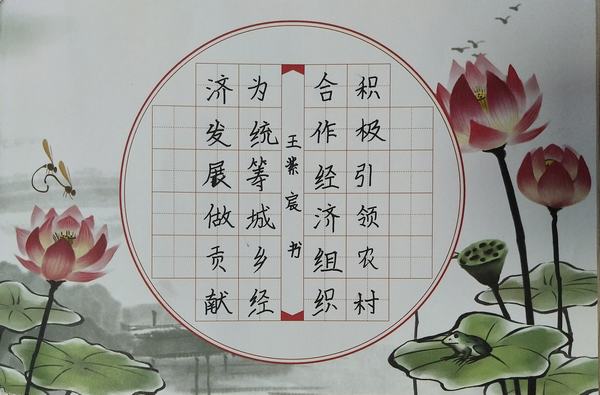 积极引领农村
合作经济组织
王紫宸 书
为统等城乡经
济发展做贡献